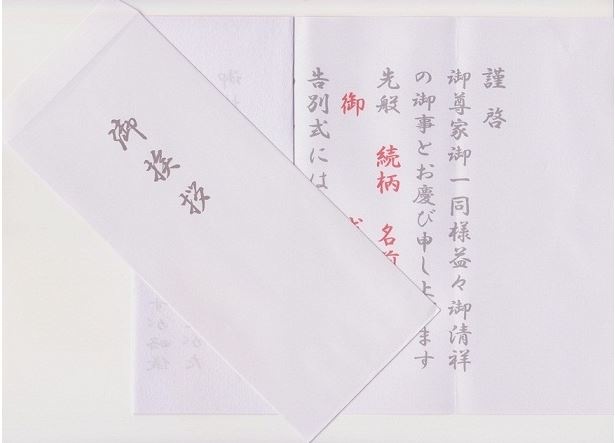 御挨拶
謹啓
御尊家御一同様益々御清祥
の御事とお慶び申し上げます
先般 続柄 名前
御
告別式には